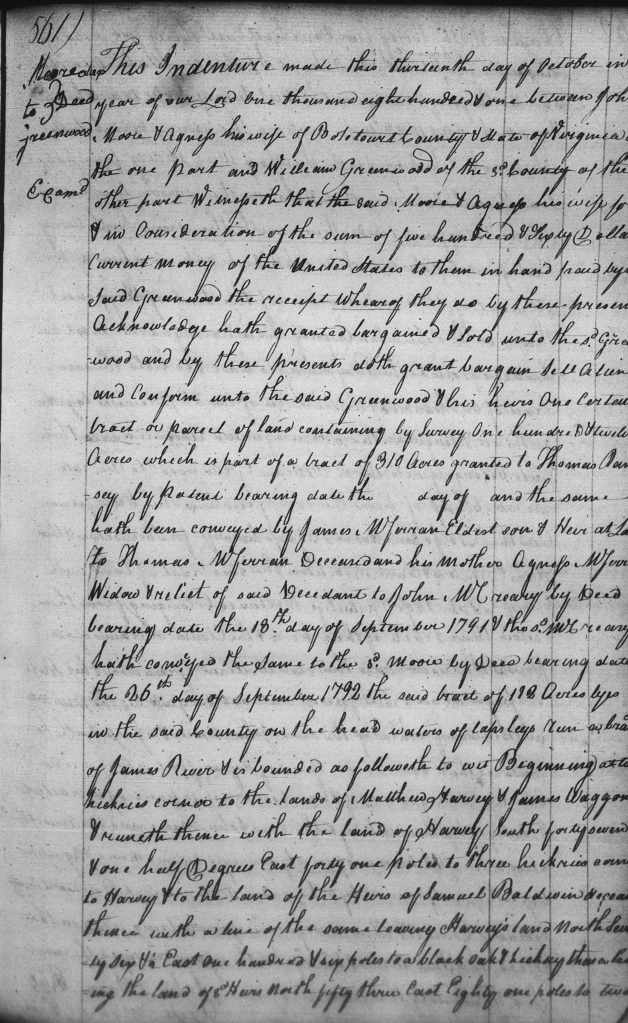 561)
Moore &ux
to } Deed
Greenwood
Exam'd
This Indenture made this thirteenth day of October in
year of our Lord One thousand eight hundred & one between John
Moore & Agness his wife of Botetourt County & State of Virginia
the one part and William Greenwood of the sd. County of the
other part Witnesseth that the said Moore & Agness his wife fo
& in Consideration of the sum of five hundred & Sixty Dolla
Current money of the United States to them in hand paid by
Said Greenwood the receipt Whearof they do by these presen
Acknowledge hath granted bargained & Sold unto the sd. Gree
wood and by these presents doth grant bargain Sell Alien
and Conform unto the said Greenwood & his heirs One Certain
tract or parcel of land containing by Survey One hundred &
Acres which is part of a tract of 310 Acres granted to Thomas Ram
sey by Patent bearing date the day of and the same
hath been conveyed by James McFerran Eldest son & Heir at La
to Thomas McFerran Deceasd and his mother Agness McFerr
Widow & relict of said Decedant to John McCreary by Deed
bearing date the 13th. day of September 1791 & the sd. McCreary
hath conveyed the Same to the sd. Moore by Deed bearing date
the 26th. day of September 1792 the said tract of 112 Acres lyes
in the said County on the head waters of Lapsleys run a bra
of James River & is bounded as followeth to wit Beginning at
hickries cornor to the lands of Matthew Harvey & James Waggon
& runeth thence with the land of Harvey South forty seven
& one half Degrees East forty one poles to three hickries corn
to Harvey & to the land of the Heirs of Samuel Baldwin
thence with a line of the same leaving Harvey's land North Seve
ty Six & ½ East One hundred & six poles to a black oak & hickry thence
ing the land of sd Heirs North fifty three East Eighty one poles to two